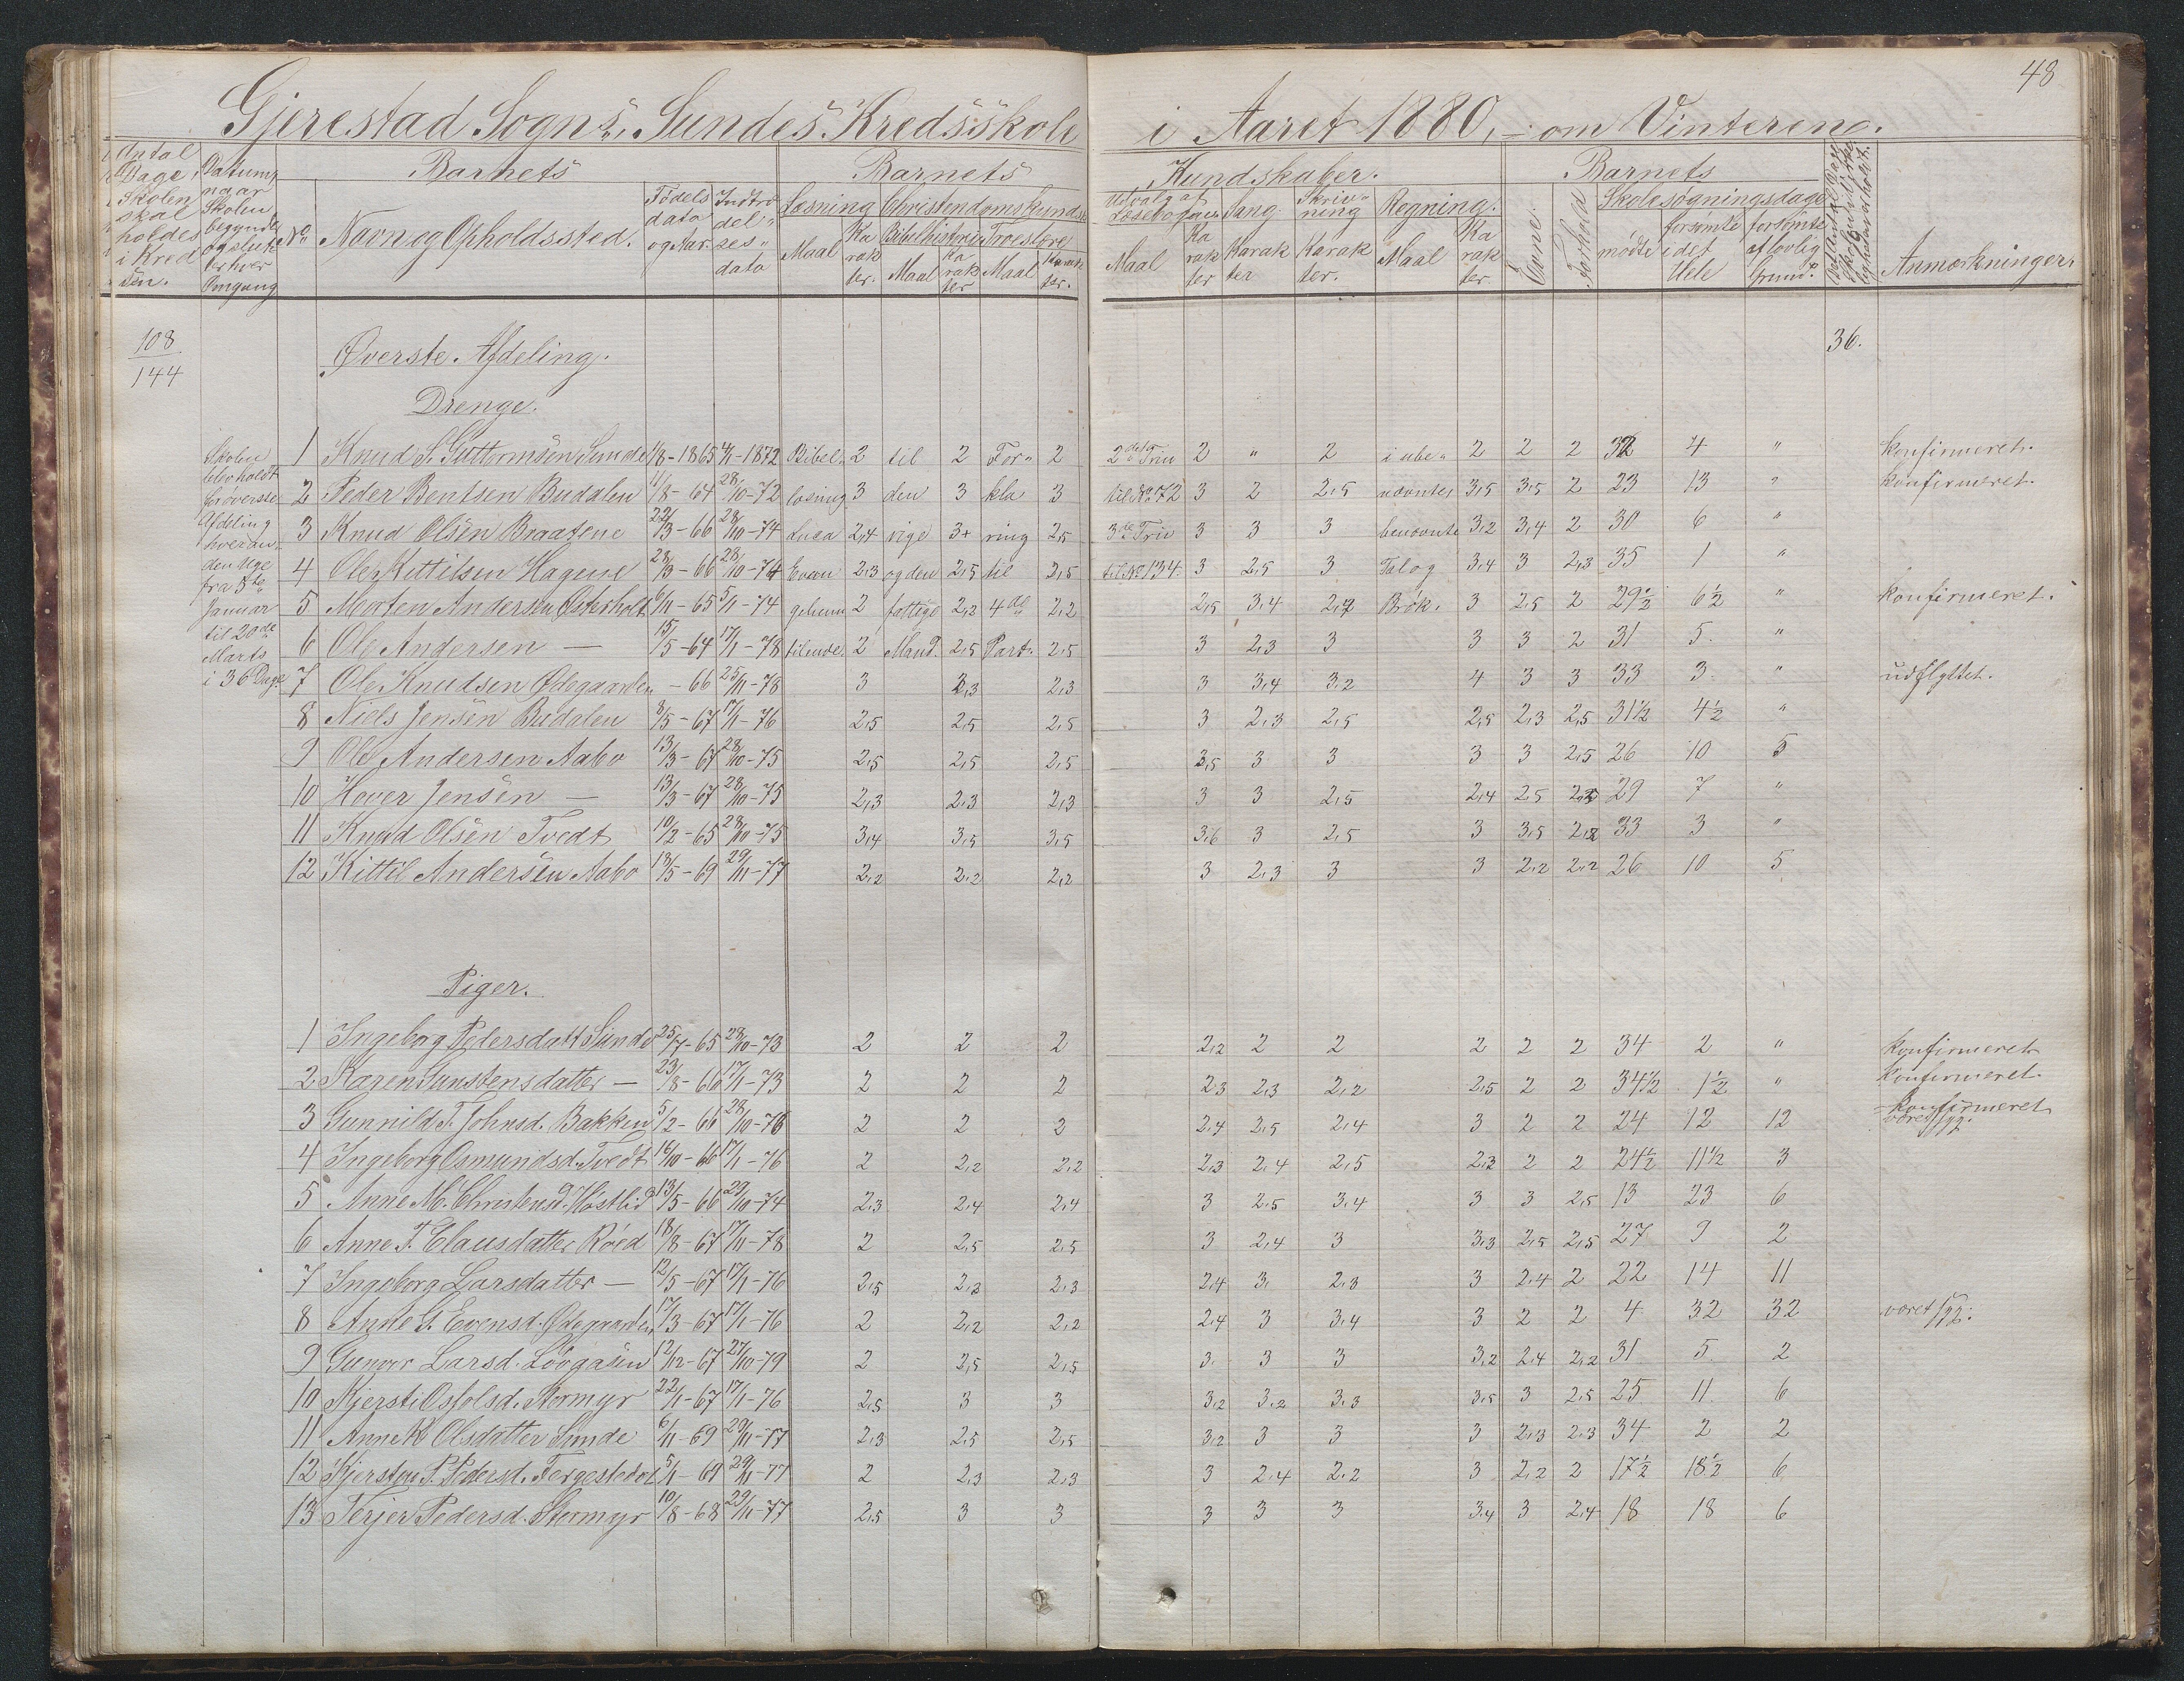 48
Gjerestad Sogns, Sundes Kredsskole i Aaret 1880, om Vinteren.
Antal Dage Skolen skal holdes i Kredsen.
Datum, naar Skolen begyndte og sluttede hver Omgang
No
Barnets
Navn og Opholdssted.
Fødelsdato og Aar.
Indtrædelsesdato
Barnets Kundskaber.
Læsning Maal Karakter.
Christendomskundsk.
Bibelhistorie Maal Karakter
Troeslære Maal Karakter.
Udvalg af Læsebogen Maal Karakter
Sang. Karakter
Skrivning Karakter.
Regning. Maal Karakter
Barnets
Evne.
Forhold
Skolesøgningsdage
mødte
forsømte i det Hele
forsømte af lovlig Grund.
Anmærkninger.
108
144
36.
Øverste Afdeling.
Drenge.
Skolen blev holdt for øverste Afdeling hver anden Uge fra 5te Januar til 20de Marts i 36 Dage
1 Knud S. Guttormsen Sunde 1/8-1865 4/11-1872 Bibel- 2 til 2 For- 2 2det Trin 2 " 2 i ube- 2 2 2 32 4 " konfirmeret.
2 Peder Bentsen Budalen 11/8-64 28/10-72 læsning 3 den 3 kla 3 til No 72 3 2 2,5 nævnte 3,5 3,5 2 23 13 " konfirmeret.
3 Knud Olsen Braatene 22/3-66 28/10-74 Luca 2,4 rige 3+ ring 2,5 3de Trin 3 3 3 benævnte 3,2 3,4 2 30 6 "
4 Ole Kittilsen Hagene 28/3-66 28/10-74 Evan 2,3 og den 2,5 til 2,5 til No 134. 3 2,5 3 Tal og 3,4 3 2,3 35 1 "
5 Morten Andersen Østerholt 6/11-65 5/1-74 gelium 2 fattige 2,2 4de 2,2 2,5 3,4 2,7 Brøk. 3 2,5 2 29½ 6½ " konfirmeret.
6 Ole Andersen — 15/5-64 17/1-78 tilende. 2 Mand. 2,5 Part. 2,5 3 2,3 3 3 3 2 31 5. "
7 Ole Knudsen Ødegaarden -66 25/11-78 3 2,3 2,3 3 3,4 3,2 4 3 3 33 3. " udflyttet.
8 Niels Jensen Budalen 8/5-67 17/1-76 2,5 2,5 2,5 3 2,3 2,5 2,5 2,3 2,5 31½ 4½ "
9 Ole Andersen Aabo 13/3-67 28/10-75 2,5 2,5 2,5 3,5 3 3 3 3 2,5 26 10 5
10 Hover Jensen — 13/3-67 28/10-75 2,3 2,3 2,3 3 3 2,5 2,4 2,5 29 7 "
11 Knud Olsen Tvedt 10/2-65 28/10-75 3,4 3,5 3,5 3,6 3 2,5 3 3,5 33 3 "
12 Kittil Andersen Aabo 13/5-69 29/11-77 2,2 2,2 2,2 3 2,3 3 3 2,2 2,2 26 10 5
Piger.
1 Ingeborg Pedersdatt Sunde 25/7-65 28/10-73 2 2 2 2,2 2 2 2 2 2 34 2 " konfirmeret
2 Karen Sunstensdatter — 23/8-66 17/1-73 2 2 2 2,3 2,3 2,2 2,5 2 2 34½ 1½ " konfirmeret.
3 Gunnild T. Johnsd. Bakken 5/2-66 28/10-76 2 2 2 2,4 2,5 2,4 3 2 2 24 12 12 konfirmeret været syg.
4 Ingeborg Osmundsd. Tvedt 14/10-66 17/1-76 2 2,2 2,2 2,3 2,4 2,5 2,3 2 2 24½ 11½ 3
5 Anne M. Christensd. Høstlid 13/5-66 29/10-74 2,3 2,4 2,4 3 2,5 3,4 3 3 2,5 13 23 6
6 Anne T. Clausdatter Röed 18/8-67 17/11-78 2 2,5 2,5 3 2,4 3 3,3 2,5 2,5 27 9 2
7 Ingeborg Larsdatter — 12/5-67 17/1-76 2,5 2,3 2,3 2,4 3. 2,3 3 2,4 2 22 14 11
8 Anne G. Evensd. Ødegaarden 17/3-67 17/1-76 2 2,2 2,2 2,4 3 3,4 3 2 2 4 32 32 været syg.
9 Gunvor Larsd. Løvgasen 12/12-67 27/10-79 2 2,5 2,5 3. 3 3 3,2 2,4 2,2 31 5 2
10 Kjersti Osfolsd. Stormyr 22/1-67 17/1-76 2,5 3 3 3,2 3,2 3,3 3,5 3 2,5 25 11 6
11 Anne K. Olsdatter Sunde 6/11-69 29/11-77 2,3 2,5 2,5 3,2 3 3 3 2,3 2,3 34 2 2
12 Kjersten P. Pedersd. Fergestedet 5/1-69 29/11-77 2 2,3 2,3 3 2,4 2,2 3 2,2 2 17½ 18½ 6
13 Terjer Pedersd. Stormyr 10/8-68 29/11-77 2,5 3 3 3 3 3 3,4 3 2,4 18 18 6